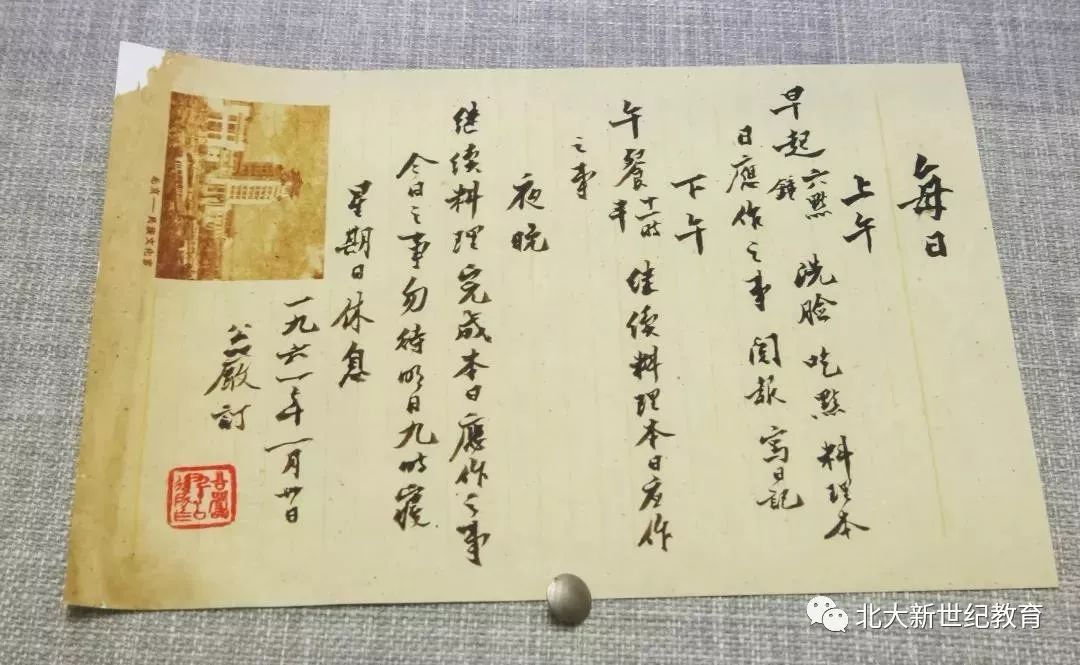 每日
上午
早起六點鐘 洗脸 吃點 料理本
日應作之事 閱報 寫日記
下午
午餐十一時半 继续料理本日应作
之事
夜晚
继续料理完成本日應作之事
今日之事勿待明日九时寢
星期日休息
一九六一年一月卅日
厰訂
北京——民族文化宫
北大新世纪教育